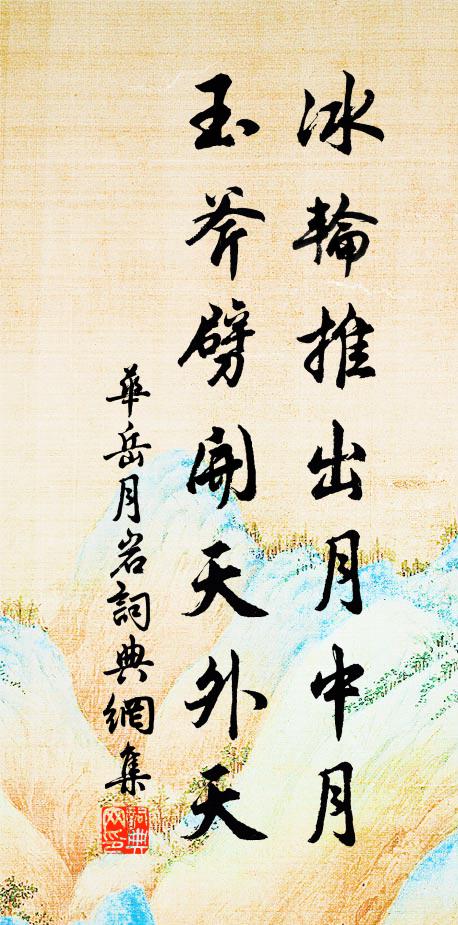 冰輪推出月中月
玉斧劈開天外天
華岳月岩詞典網集
詞典